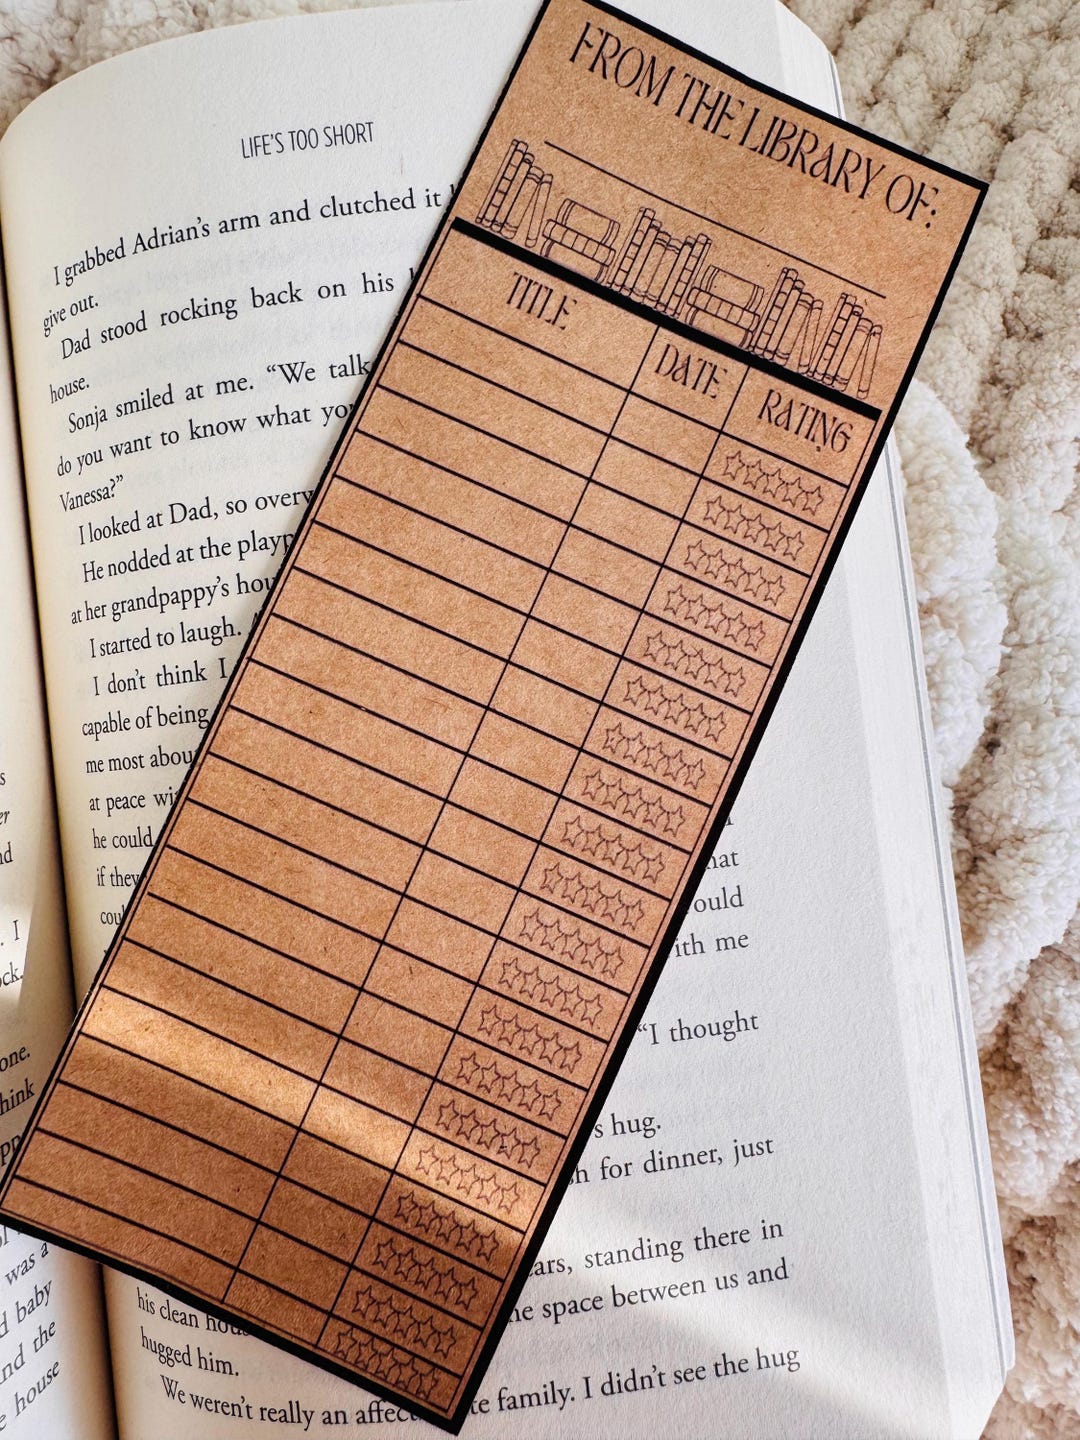 FROM THE LIBRARY OF:
TITLE DATE RATING
LIFE'S TOO SHORT
I grabbed Adrian's arm and clutched it
give out.
Dad stood rocking back on his
house.
Sonja smiled at me. "We talk
do you want to know what you
Vanessa?"
I looked at Dad, so overw
He nodded at the playp
at her grandpappy's hou
I started to laugh.
I don't think I
capable of being
me most abou
at peace wi
he could
if they
cou
hat
ould
ith me
"I thought
s hug.
h for dinner, just
ears, standing there in
he space between us and
his clean hou
hugged him.
We weren't really an affect te family. I didn't see the hug
er
nd
. I
ock.
one.
hink
was a
d baby
nd the
house